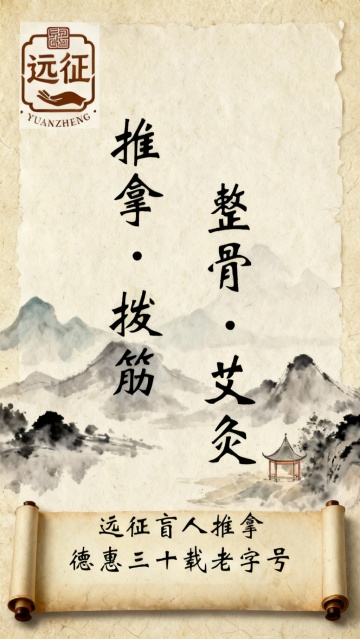 远征
YUANZHENG
推拿·拨筋
整骨·艾灸
远征盲人推拿
德惠三十载老字号